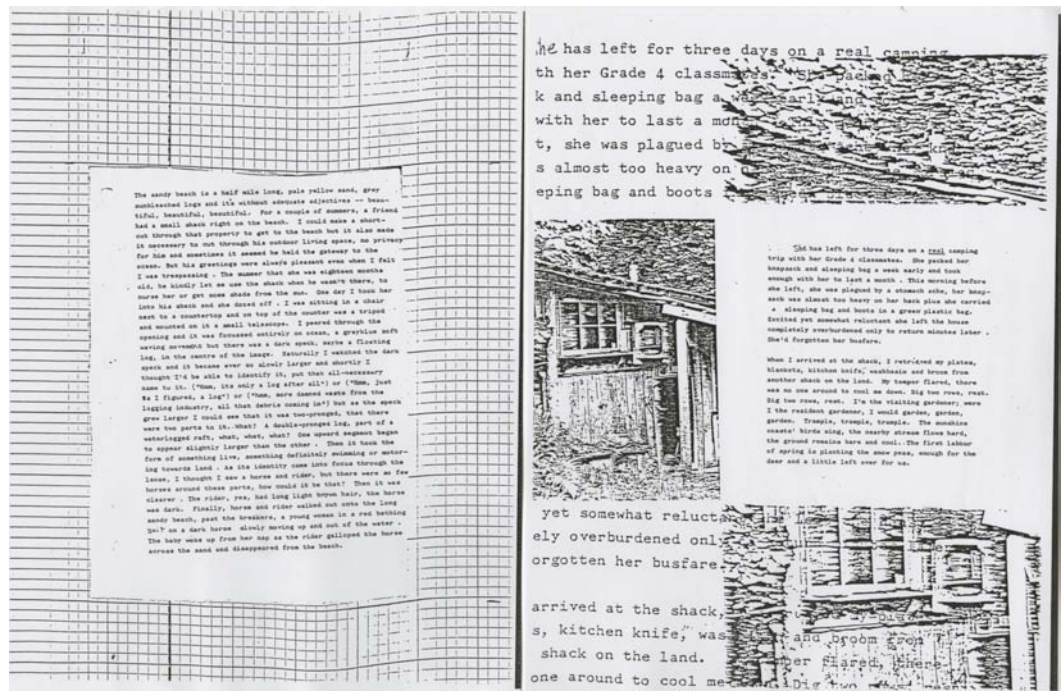 The sandy beach is a half mile long, pale yellow sand, grey
sunbleached logs and its without adequate adjectives -- beau-
tiful, beautiful, beautiful. For a couple of summers, a friend
had a small shack right on the beach. I could make a short-
cut through that property to get to the beach but it also made
it necessary to cut through his outdoor living space, no privacy
for him and sometimes it seemed he held the gateway to the
ocean. But his greetings were always pleasant even when I felt
I was trespassing . The summer that she was eighteen months
old, he kindly let me use the shack when he wasn't there, to
nurse her or get some shade from the sun. One day I took her
into his shack and she dozed off . I was sitting in a chair
next to a countertop and on top of the counter was a tripod
and mounted on it a small telescope. I peered through the
opening and it was focussed entirely on ocean, a greyblue soft
waving movement but there was a dark speck, maybe a floating
log, in the centre of the image. Naturally I watched the dark
speck and it became ever so slowly larger and shortly I
thought I'd be able to identify it, put that all-necessary
name to it. ("Hmm, its only a log after all") or ("Hmm, just
as I figured, a log") or ("hmm, more damned waste from the
logging industry, all that debris coming in") but as the speck
grew larger I could see that it was two-pronged, that there
were two parts to it. What? A double-pronged log, part of a
waterlogged raft, what, what, what? One upward segment began
to appear slightly larger than the other . Then it took the
form of something live, something definitely swimming or motor-
ing towards land . As its identity came into focus through the
lense, I thought I saw a horse and rider, but there were so few
horses around these parts, how could it be that? Then it was
clearer . The rider, yes, had long light brown hair, the horse
was dark. Finally, horse and rider walked out onto the long
sandy beach, past the breakers, a young woman in a red bathing
suit on a dark horse slowly moving up and out of the water .
The baby woke up from her nap as the rider galloped the horse
across the sand and disappeared from the beach.
he has left for three days on a real camping
th her Grade 4 classmates. She packed
k and sleeping bag a week early and
with her to last a mon
t, she was plagued by
s almost too heavy on
eping bag and boots
She has left for three days on a real camping
trip with her Grade 4 classmates. She packed her
knapsack and sleeping bag a week early and took
enough with her to last a month . This morning before
she left, she was plagued by a stomach ache, her knap-
sack was almost too heavy on her back plus she carried
a sleeping bag and boots in a green plastic bag.
Excited yet somewhat reluctant she left the house
completely overburdened only to return minutes later .
She'd forgotten her busfare.
When I arrived at the shack, I retrieved my plates,
blankets, kitchen knife, washbasin and broom from
another shack on the land. My temper flared, there
was no one around to cool me down. Dig two rows, rest.
Dig two rows, rest. I'm the visiting gardener; were
I the resident gardener, I would garden, garden,
garden. Trample, trample, trample. The sunshine
coasts' birds sing, the nearby stream flows hard,
the ground remains bare and cool. The first labour
of spring is planting the snow peas, enough for the
deer and a little left over for us.
yet somewhat relucta
ely overburdened only
orgotten her busfare.
arrived at the shack,
s, kitchen knife, was and broom from
shack on the land. per flared, there
one around to cool me Dig two